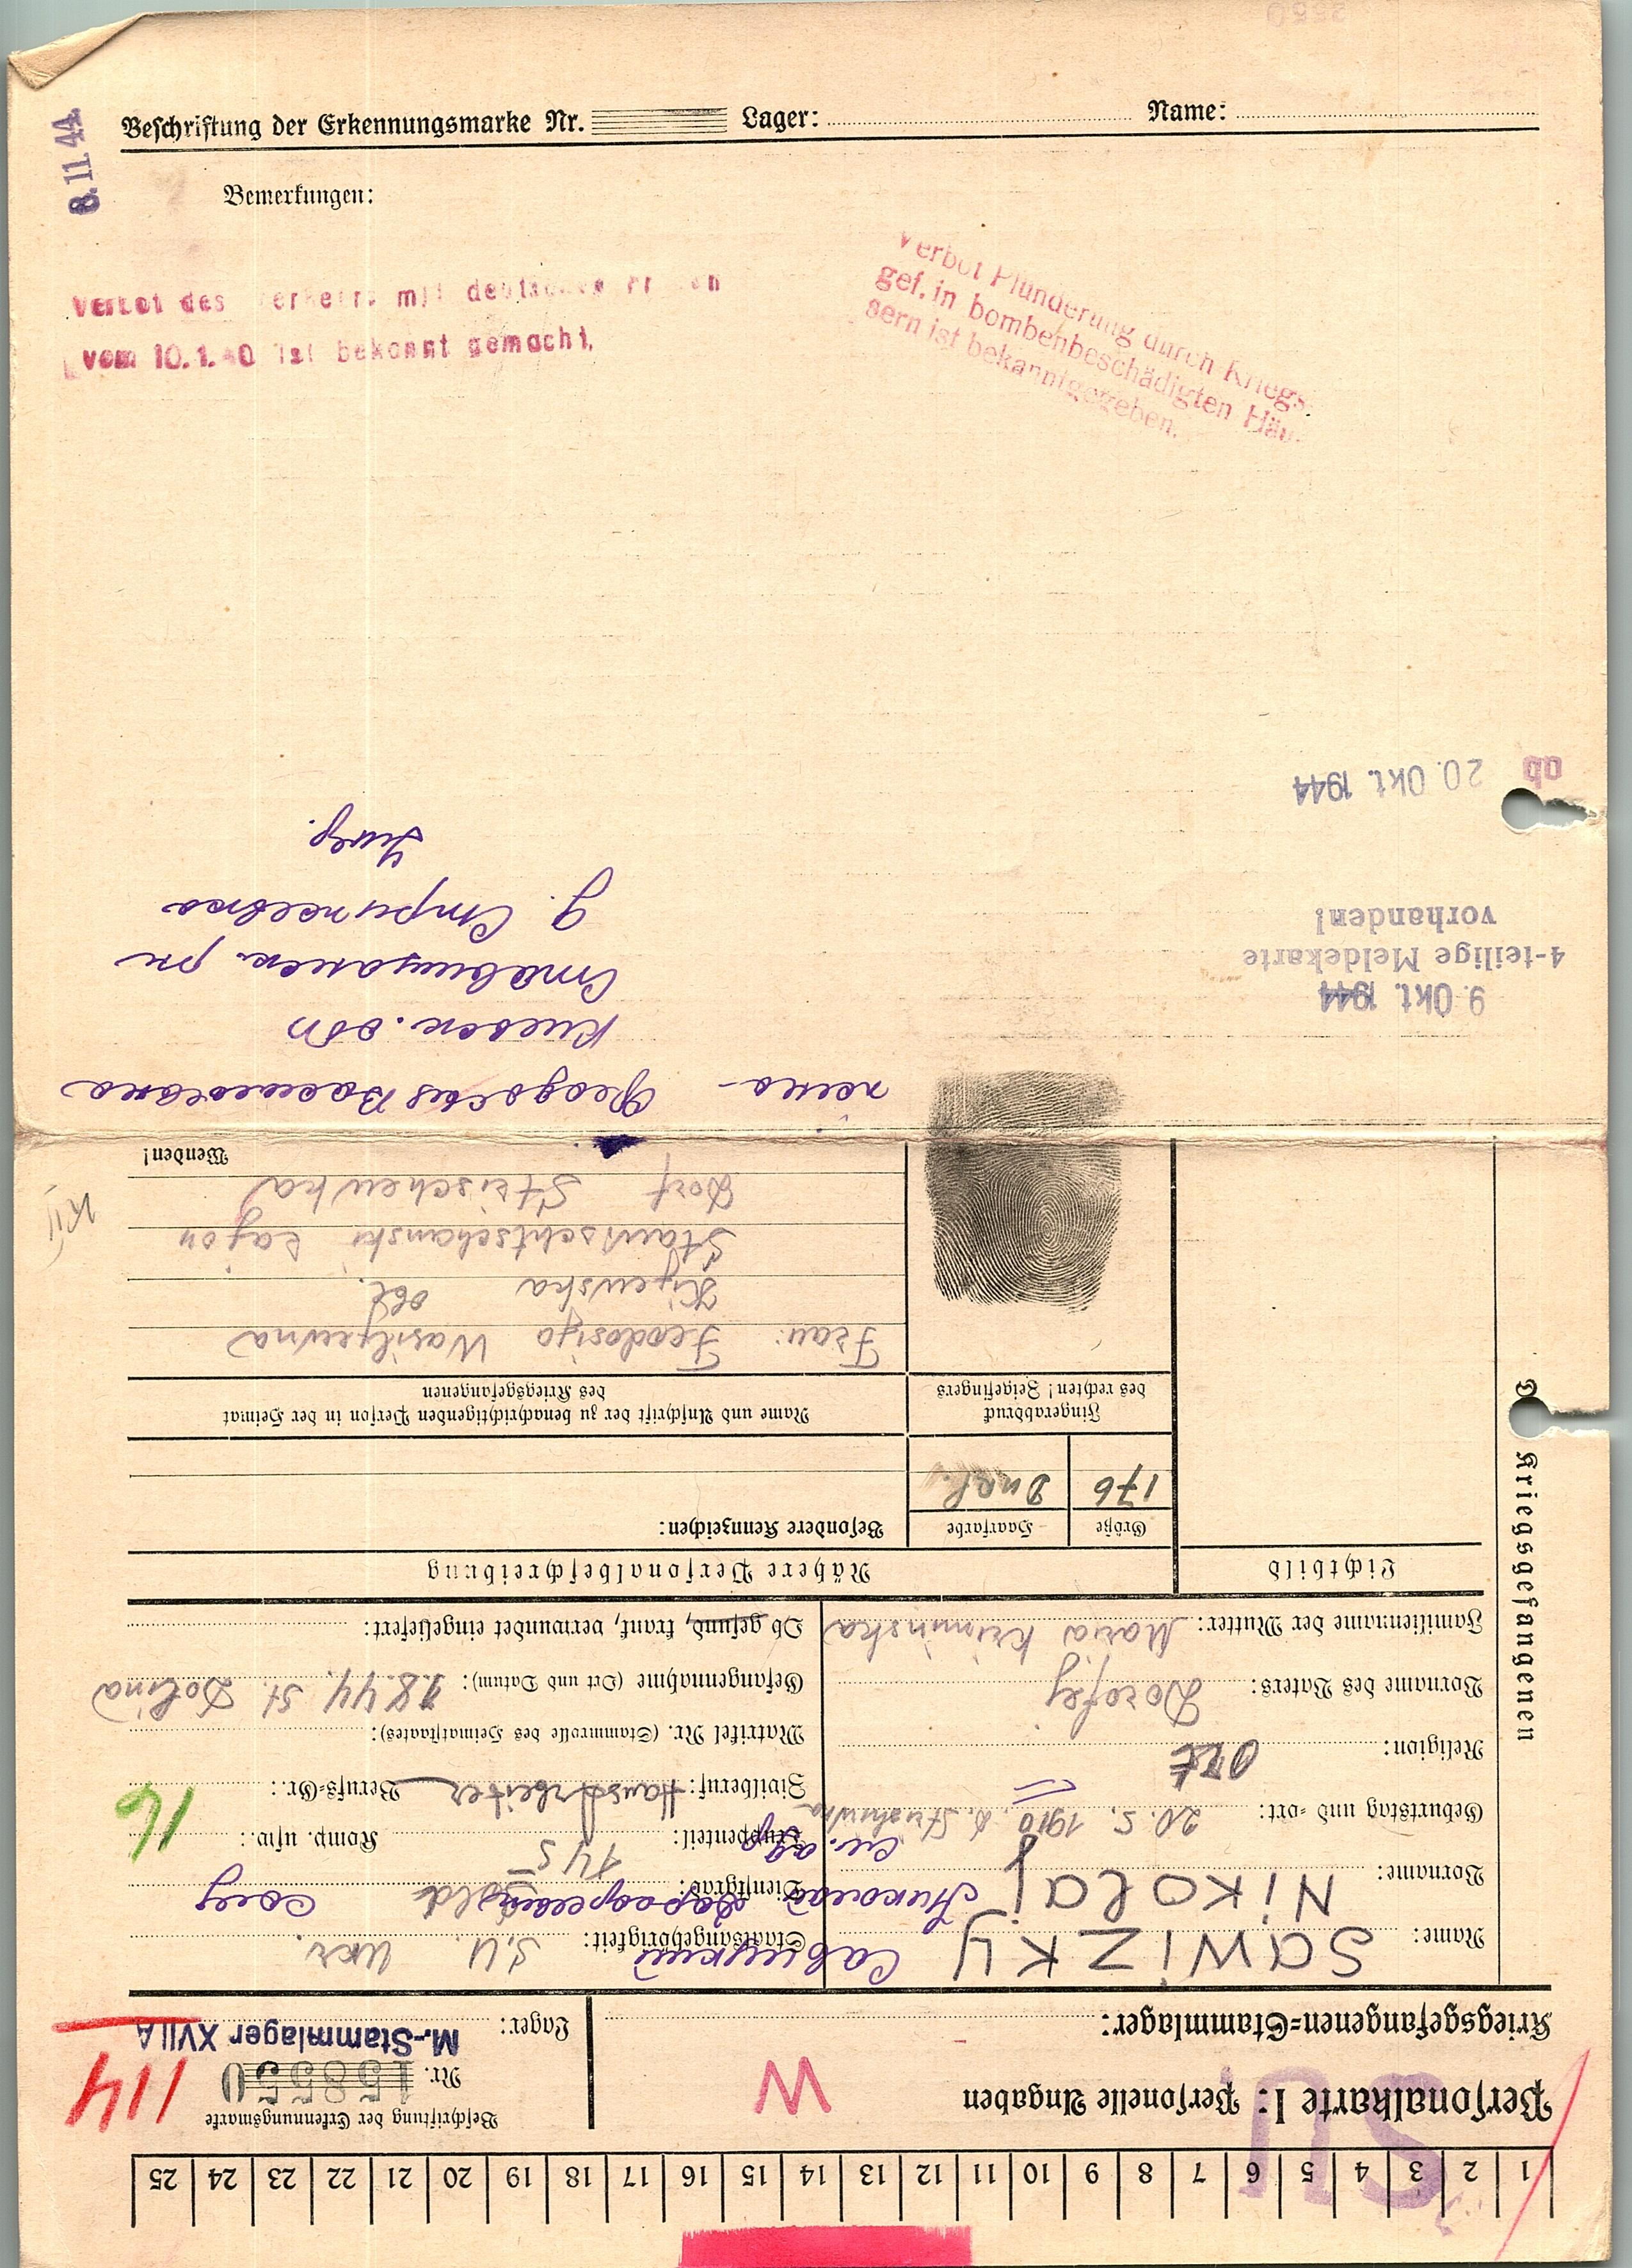 Beschriftung der Erkennungsmarke Nr. Lager: Name:
8. 11. 44.
Bemerkungen:
Verbot des mit
vom 10.1.40 ist bekannt gemacht.
Verbot Plünderung durch Kriegs-
gef. in bombenbeschädigten Häu-
sern ist bekanntgegeben.
1 2 3 4 5 6 7 8 9 10 11 12 13 14 15 16 17 18 19 20 21 22 23 24 25
SU
Personalkarte I: Personelle Angaben
W
Beschriftung der Erkennungsmarke
Nr. 158550
114
Kriegsgefangenen-Stammlager:
Lager: M.-Stammlager XVII A
Des Kriegsgefangenen
Name: Sawizkij Савицкий
Staatsangehörigkeit: S.U. Ukr.
Vorname: Nikolaj Николай
Dienstgrad: Sold.
Geburtstag und -ort: 20. 5. 1910
Truppenteil: Komp. usw.:
16
Religion: Ort
Zivilberuf: Berufs-Gr.:
Vorname des Vaters: Dorofej
Matrikel Nr. (Stammrolle des Heimatstaates):
Familienname der Mutter: Maria
Gefangennahme (Ort und Datum): 8.44. St. Dolina
Ob gesund, krank, verwundet eingeliefert:
Lichtbild
Nähere Personalbeschreibung
Größe Haarfarbe Besondere Kennzeichen:
176 Dnkl.
Fingerabdruck
des rechten! Zeigefingers
Name und Anschrift der zu benachrichtigenden Person in der Heimat
des Kriegsgefangenen
Frau: Feodosija Wasiljewna
Kijewska obl.
rajon
Dorf
Wenden!
жена - Феодосия Васильевна
Киевск. обл
9. Okt. 1944
4-teilige Meldekarte
vorhanden!
ab 20. Okt. 1944